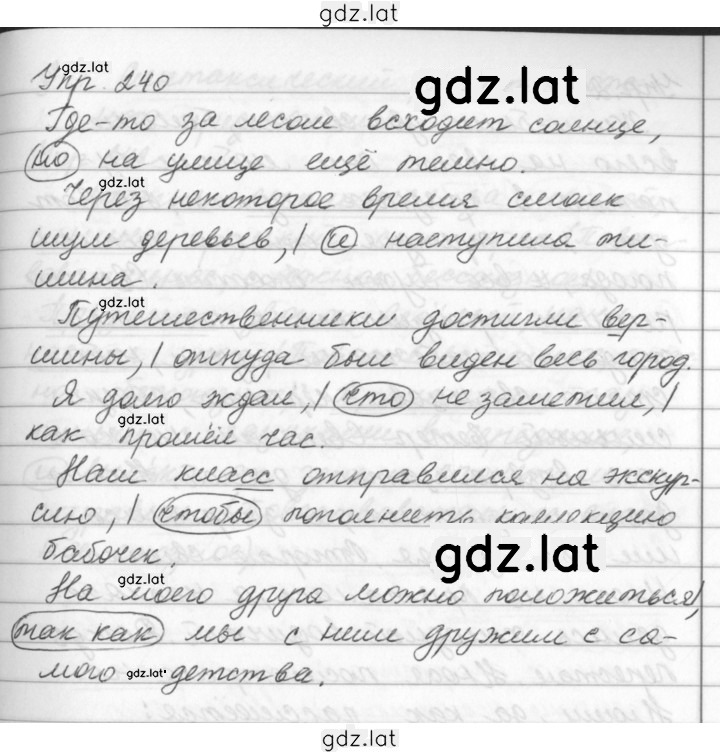 gdz.lat
gdz.lat
Упр. 240
gdz.lat
Где-то за лесом всходит солнце,
но на улице ещё темно.
gdz.lat
Через некоторое время смолк
шум деревьев, | и наступила ти-
шина.
gdz.lat
Путешественники достигли вер-
шины, | откуда был виден весь город.
Я долго ждал, | что не заметил, |
gdz.lat
как прошёл час.
Наш класс отправился на экскур-
сию, | чтобы пополнить коллекцию
бабочек.
gdz.lat
gdz.lat
На моего друга можно положиться, |
так как мы с ним дружим с са-
мого детства.
gdz.lat
gdz.lat